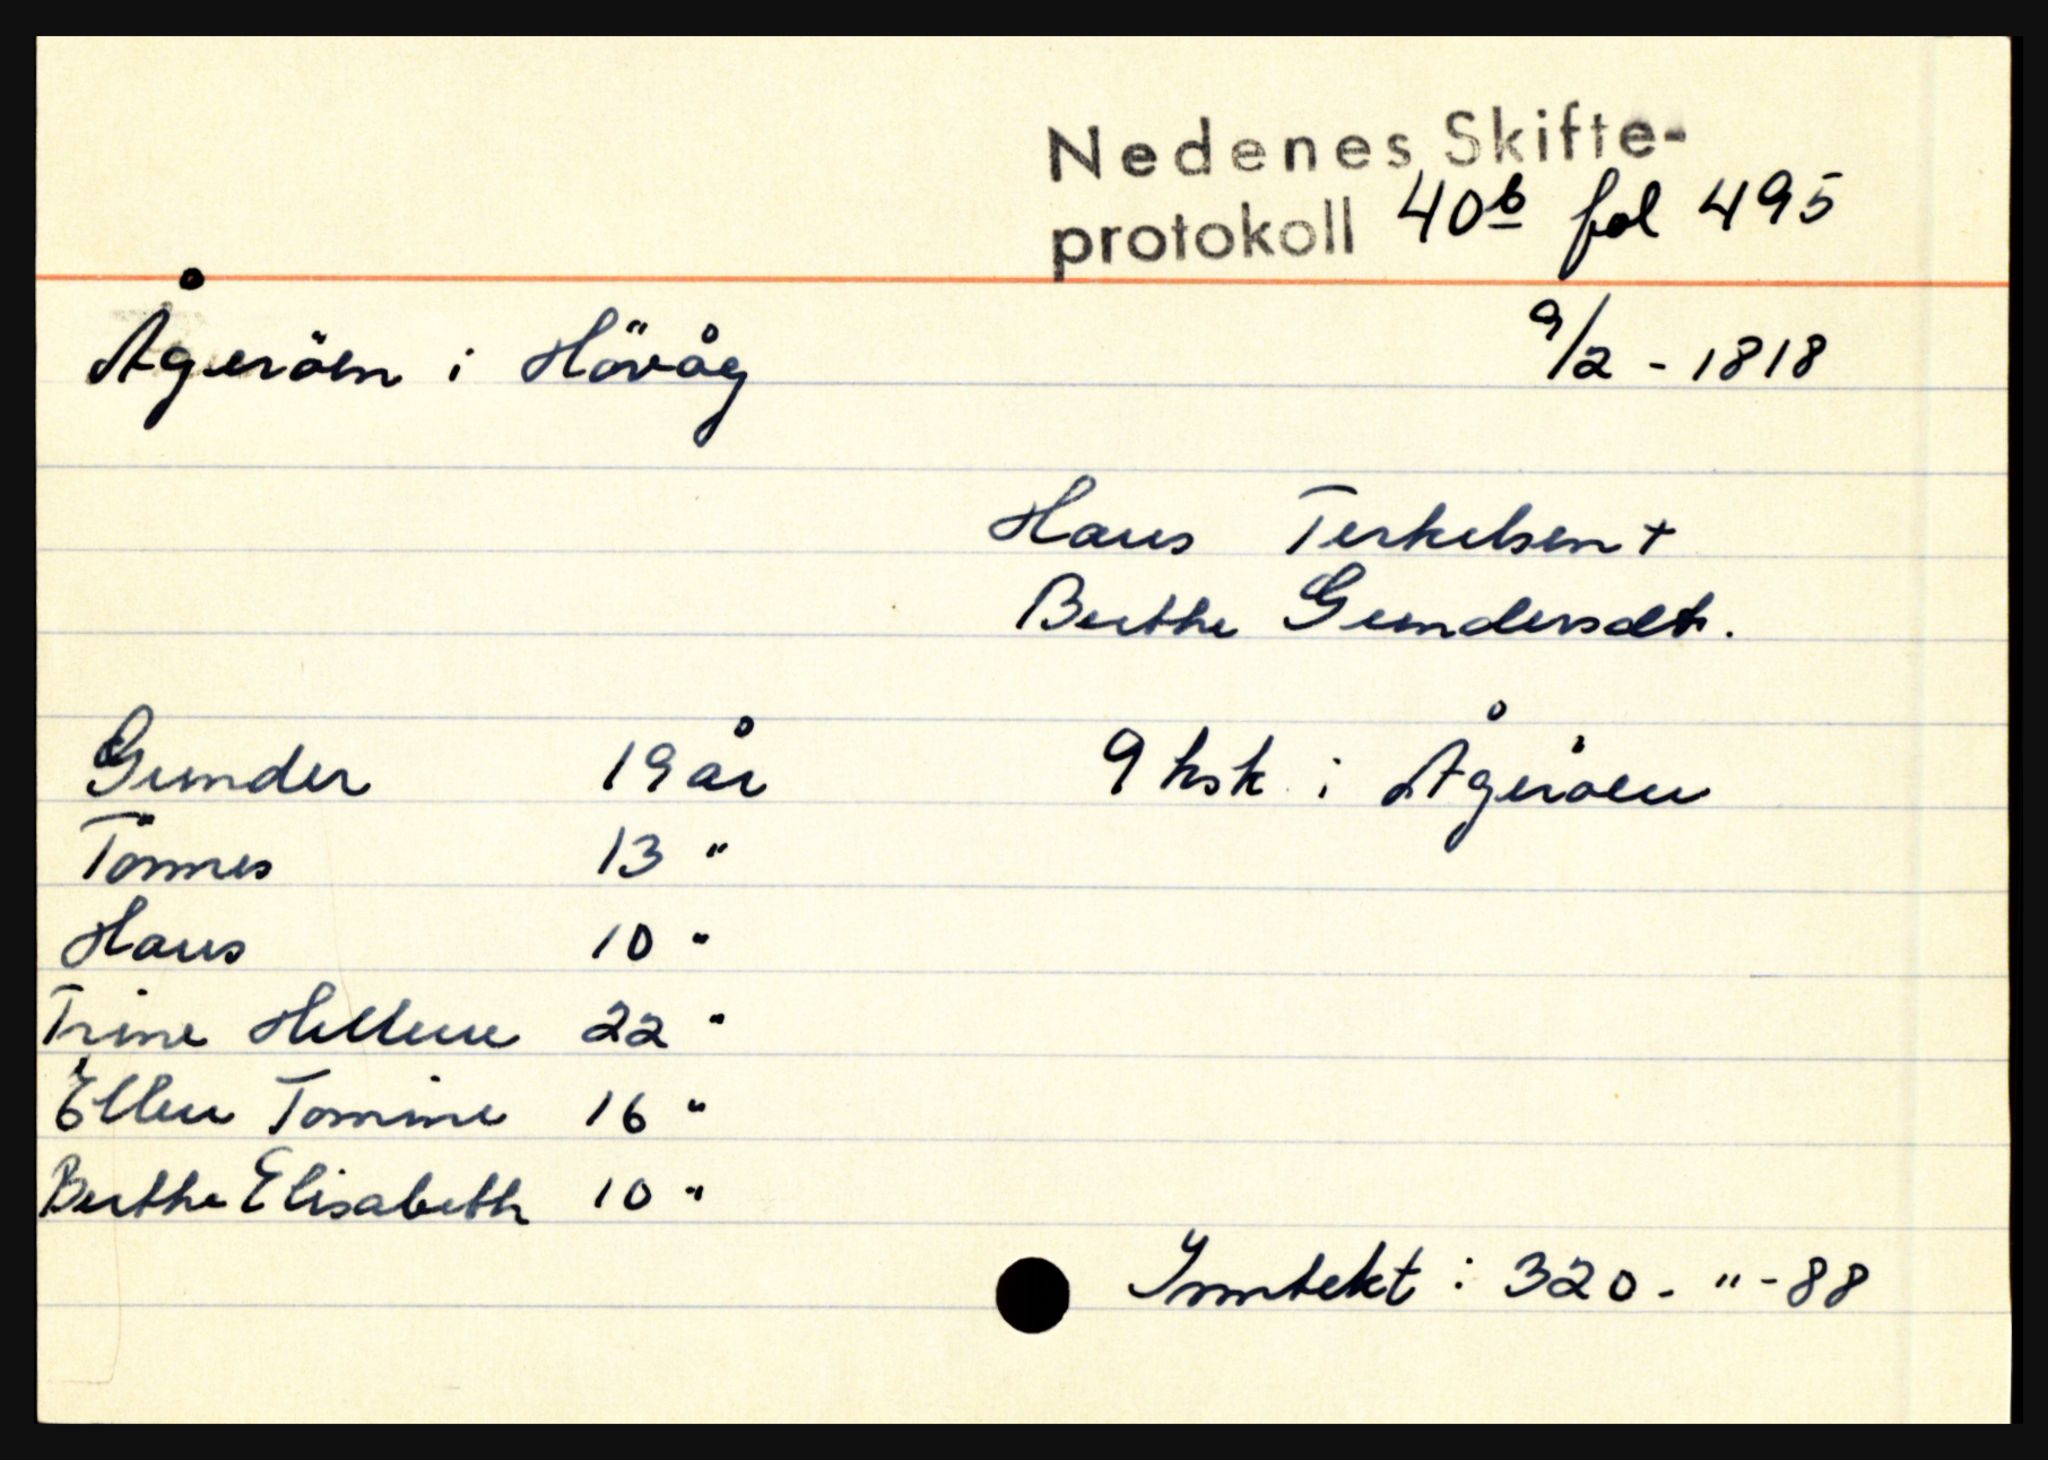 Nedenes Skifte-
protokoll 40b fol 495
Ågeröen i Hövåg 9/2 - 1818
Hans Terkelsen +
Berthe Gundersdt.
Gunder 19 år 9 ksk i Ågeröen
Tönnes 13 "
Hans 10 "
Trine Hellene 22 "
Ellen Tomine 16 "
Berthe Elisabeth 10 "
Inntekt : 320 - " - 88